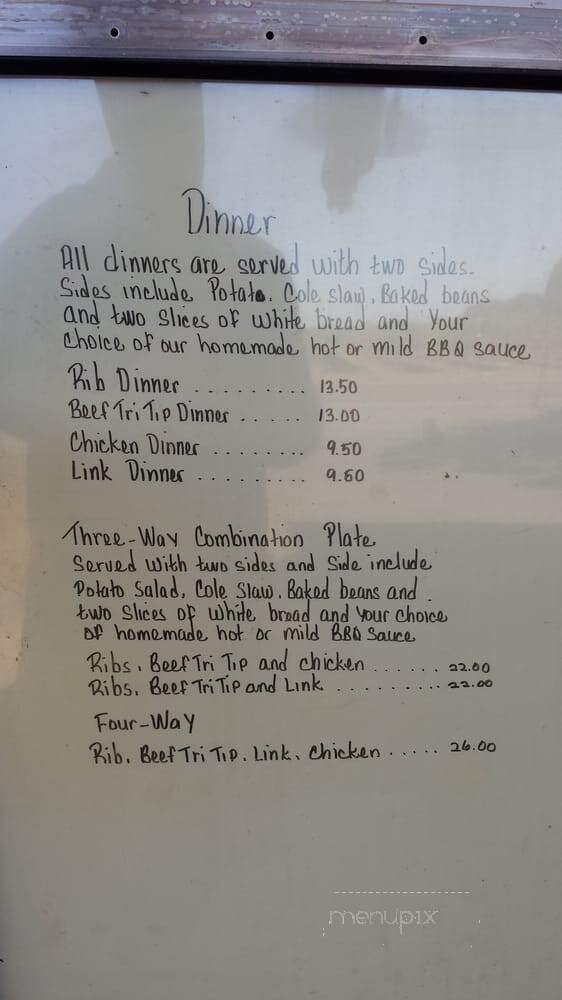 Dinner
All dinners are served with two sides.
Sides include Potato. Cole slaw. Baked beans
and two slices of white bread and Your
choice of our homemade hot or mild BBQ sauce
Rib Dinner ......... 13.50
Beef Tri Tip Dinner ..... 13.00
Chicken Dinner ........ 9.50
Link Dinner ......... 9.50
Three-Way Combination Plate
Served with two sides and Side include
Potato Salad, Cole Slaw. Baked beans and
two Slices of white bread and Your choice
of homemade hot or mild BBQ Sauce
Ribs. Beef Tri Tip and chicken ...... 22.00
Ribs. Beef Tri Tip and Link .......... 22.00
Four-Way
Rib. Beef Tri Tip. Link. Chicken ..... 26.00
menupix